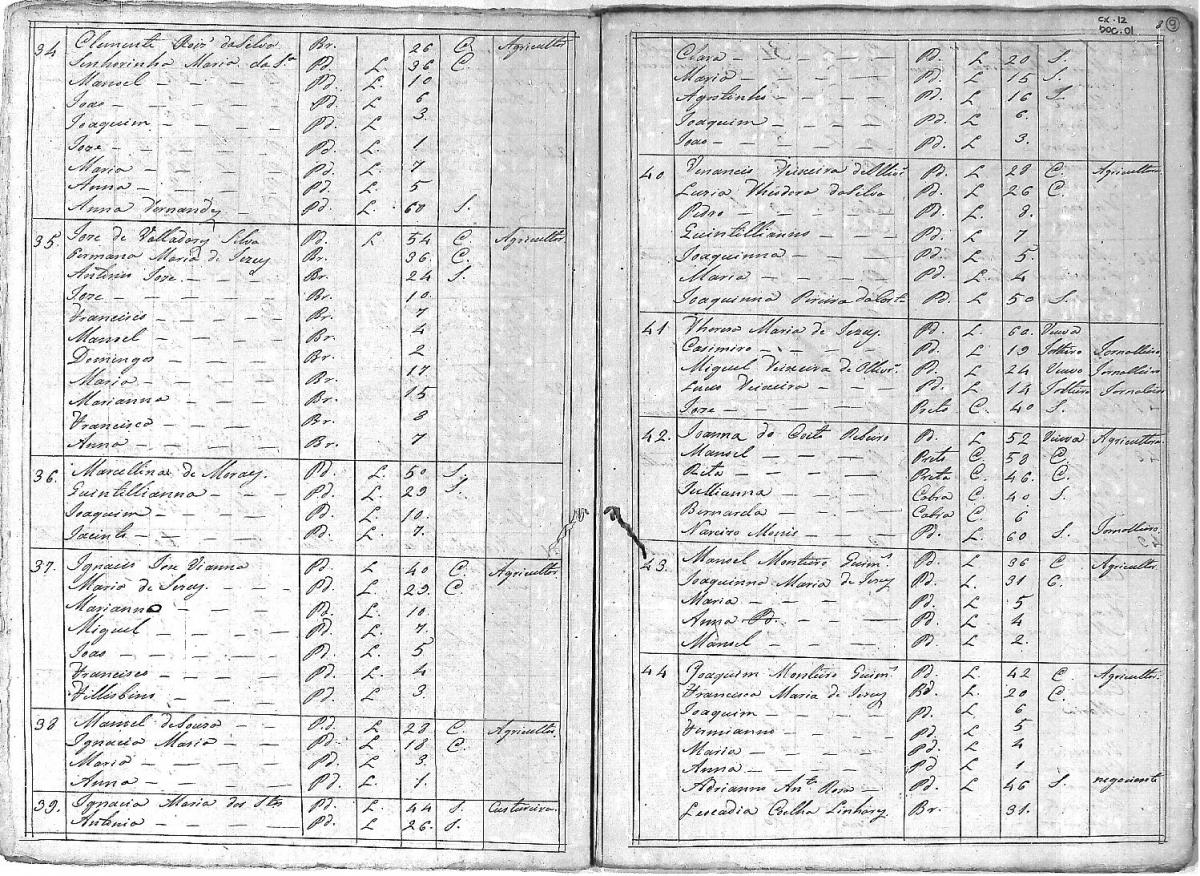 34 Clemente Roiz da Silva Br. 26 C. Agricultor
Senhorinha Maria da Sa Pd. L 36 C.
Manoel Pd. L. 10
Joao Pd. L 6
Joaquim Pd. L 3
Joze Pd. L. 1
Maria Pd. L 7
Anna Pd. L 5
Anna Fernandes Pd. L. 60 S.
35 Joze de Valladares Silva Pd. L 54 C. Agricultor
Germana Maria de Jezus Br. 36 C.
Antonio Joze Br. 24 S.
Joze Br. 10
Francisco Br. 7
Manoel Br. 4
Domingos Br. 2
Maria Br. 17
Marianna Br. 15
Francisca Br. 8
Anna Br. 7
36. Marcellina de Moraes Pd. L. 50 S.
Quintillianna Pd. L 29 S.
Joaquim Pd. L 10.
Jacinto Pd. L 7.
37. Ignacio Vianna Pd. L 40 C. Agricultor
Maria de Jezus Pd. L. 29 C.
Marianno Pd. L. 10
Miguel Pd. L. 7
Joao Pd. L. 5
Francisco Pd. L 4
Pd. L 3.
38 Manoel de Souza Pd. L 28 C. Agricultor
Ignacia Maria Pd. L 18 C.
Maria Pd. L 3
Anna Pd. L 1.
39. Ignacia Maria dos Stos Pd. L. 44 S. Custoreira
Antonia Pd. L 26. S.
CX.12
DOC.01
8 9
Clara Pd. L 20 S.
Maria Pd. L 15 S.
Agostinho Pd. L 16 S.
Joaquim Pd. L 6.
Joao Pd. L 3.
40 Venancio Teixeira de Pd. L 29 C. Agricultor
Luzia Theodora da Silva Pd. L 26 C.
Pedro Pd. L 8.
Quintillianno Pd. L 7
Joaquinna Pd. L 5.
Maria Pd. L 4
Joaquinna Pereira da Costa Pd. L 50 S.
41 Thereza Maria de Jezus Pd. L. 60. Viuva
Casimiro Pd. L 19 Solteiro Jornalleiro
Miguel Teixeira de Pd. L 24 Viuvo Jornalleiro
Lucio Teixeira Pd. L 14 Solteiro Jornaleiro
Joze Preto C. 40 S.
42. Joanna do Couto Ribeiro Pd. L 52 Viuva Agricultora
Manoel Preto C. 58 C.
Rita Preta C. 46. C.
Jullianna Cabra C. 40 S.
Bernarda Cabra C. 6
Narcizo Monis Pd. L 60 S. Jornalleiro
43. Manoel Monteiro Guimes Pd. L 36 C Agricultor
Joaquinna Maria de Jezus Pd. L 31 C.
Maria Pd. L 5
Anna Pd. Pd. L 4
Manoel Pd. L 2.
44 Joaquim Monteiro Guimes Pd. L 42 C Agricultor
Francisca Maria de Jezus Pd. L 20 C.
Joaquim Pd. L 6
Firmianno Pd. L 5
Maria Pd L 4
Anna Pd L 1
Adrianno Anto Roza Pd. L 46 S. negociante
Leocadia Coelha Linhares Br 31.